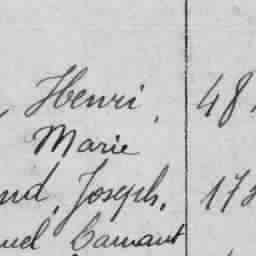 Henri, 48
Marie
nd, Joseph. 17
uel Camant